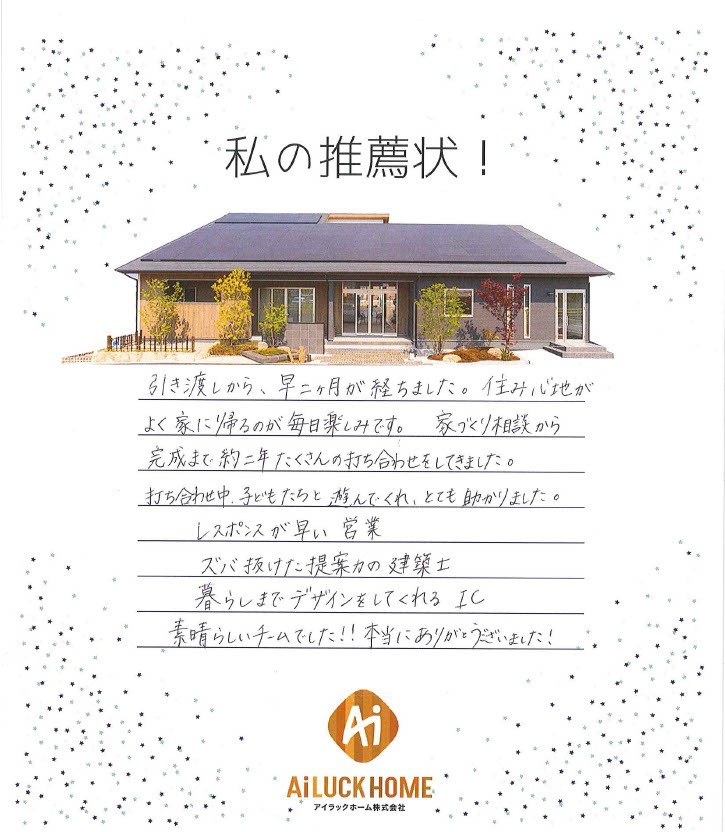 私の推薦状！
引き渡しから、早二ヶ月が経ちました。住み心地が
よく家に帰るのが毎日楽しみです。 家づくり相談から
完成まで約二年たくさんの打ち合わせをしてきました。
打ち合わせ中、子どもたちと遊んでくれ、とても助かりました。
レスポンスが早い営業
ズバ抜けた提案力の建築士
暮らしまでデザインをしてくれるIC
素晴らしいチームでした!!本当にありがとうございました!
Ai
AiLUCKHOME
アイラックホーム株式会社